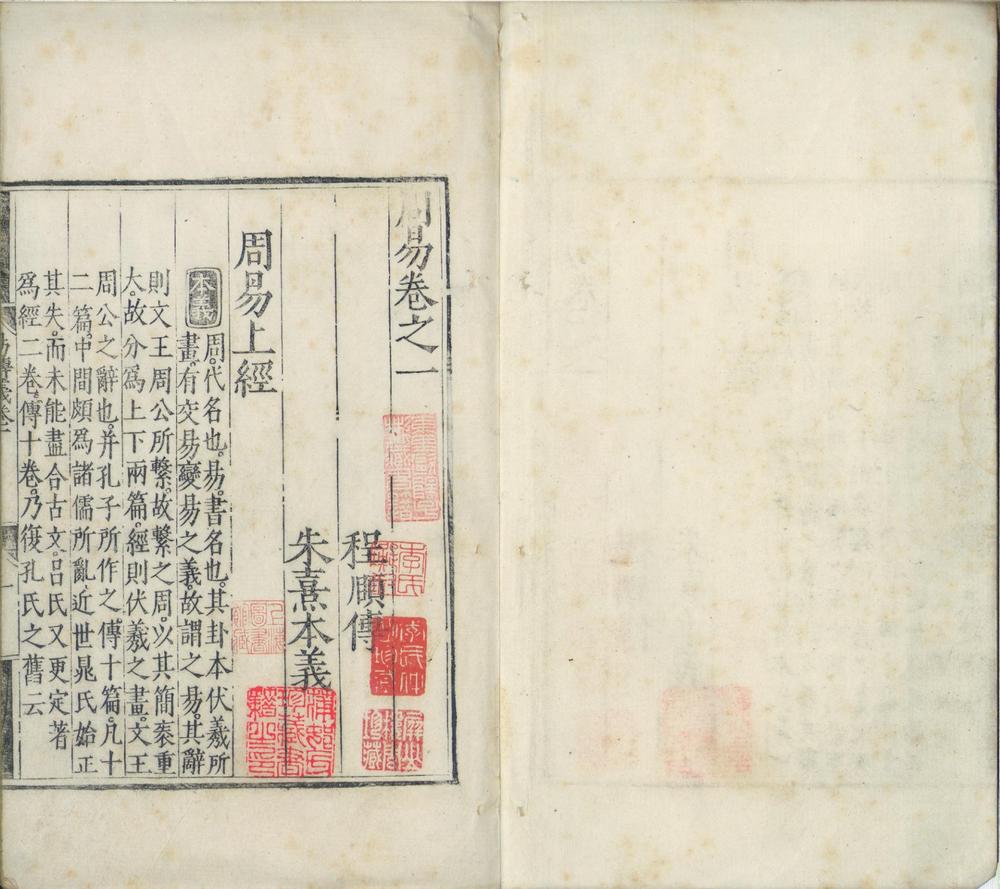 周易卷之一
程頤傳
朱熹本義
周易上經
本義
周。代名也。易。書名也。其卦本伏羲所
畫。有交易變易之義。故謂之易。其辭
則文王周公所繫。故繫之周。以其簡袠重
大。故分爲上下兩篇。經則伏羲之畫。文王
周公之辭也。并孔子所作之傳十篇。凡十
二篇。中間頗爲諸儒所亂。近世晁氏始正
其失。而未能盡合古文。呂氏又更定著
爲經二卷。傳十卷。乃復孔氏之舊云